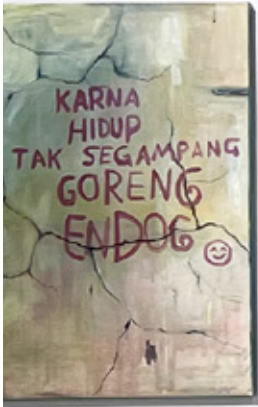 KARNA
HIDUP
TAK SEGAMPANG
GORENG
ENDOG